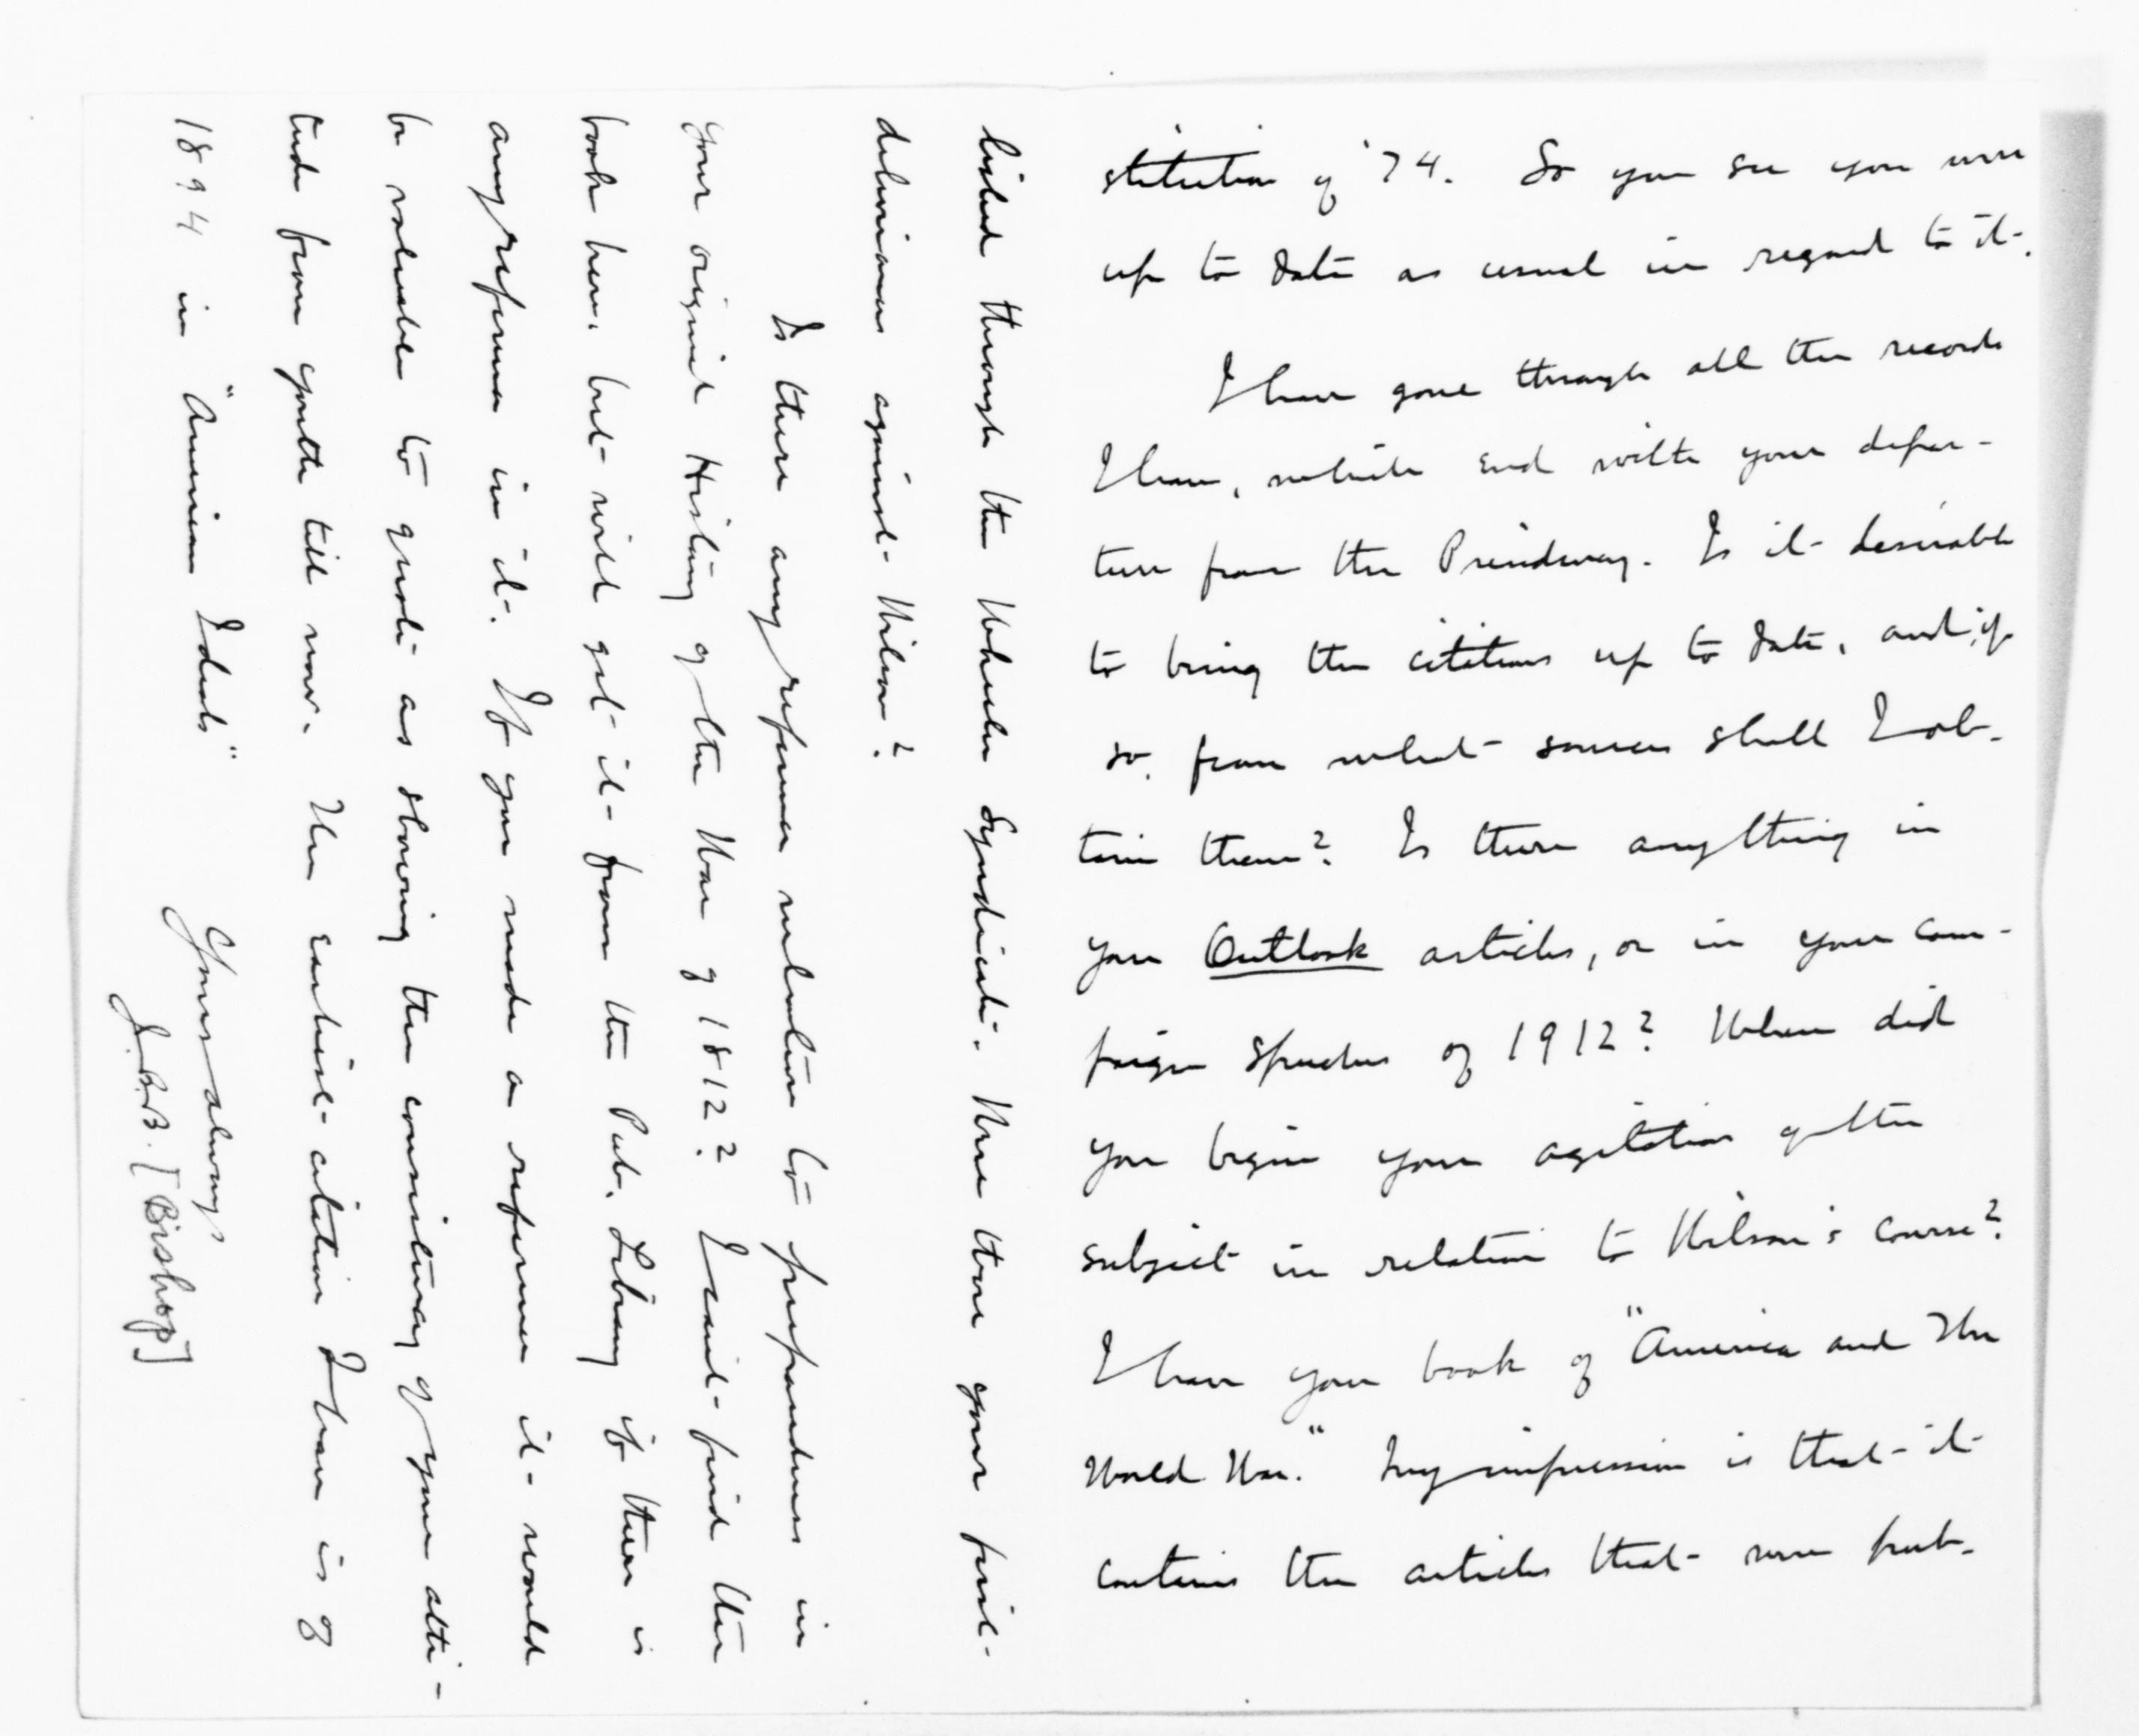 stitution of '74. So you see you were
up to date as usual in regard to it.
I have gone through all the records
I have, which end with your depar-
ture from the Presidency. Is it desirable
to bring the citations up to date, and, if
so, from what sources shall I ob-
tain them? Is there anything in
your Outlook articles, or in your cam-
paign speeches of 1912? When did
you begin your agitation of the
subject in relation to Wilson's course?
I have your book of "America and The
World War." My impression is that it
contains the articles that were pub-
lished through the Wheeler Syndicate. Were these your first
deliverances against Wilson?
Is there any reference relative to preparedness in
your original History of the War of 1812? I can't find the
book here, but will get it from the Pub. Library if there is
any reference in it. If you made a reference it would
be valuable to quote as showing the consistency of your atti-
tude from youth till now. The earliest citation I have is of
1894 in "American Ideals"
Yours always
J.B.B. [Bishop]